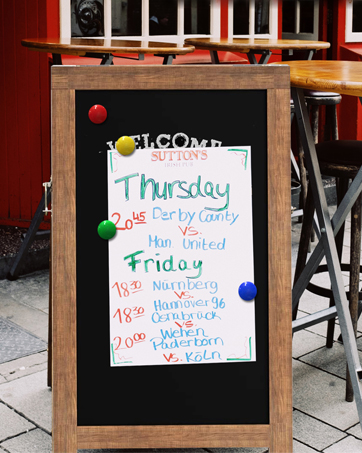 WELCOME
SUTTON'S
Thursday
20 45 Derby County
VS.
Man. United
Friday
18 30 Nürnberg
VS.
Hannover 96
18 30 Osnabrück
VS
Wehen
20 00 Paderborn
VS. Köln